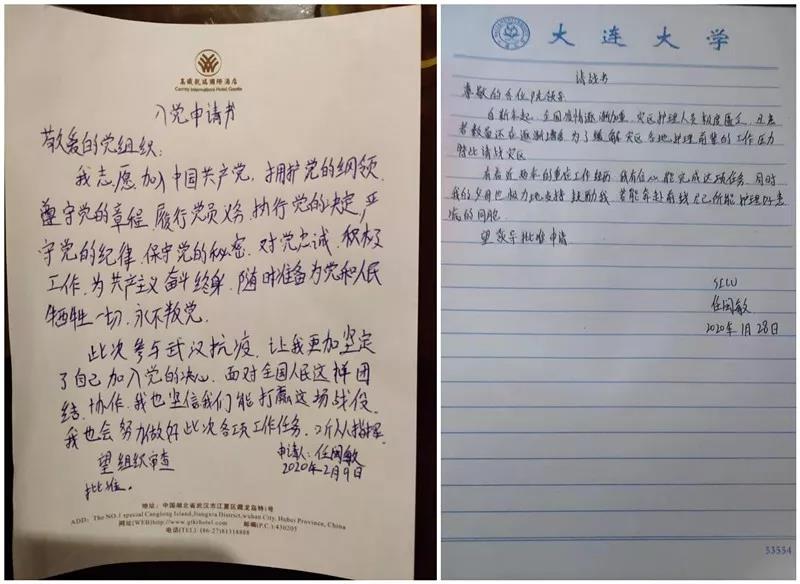 高威乾瑞國際酒店
入党申请书
敬爱的党组织：
我志愿加入中国共产党，拥护党的纲领，
遵守党的章程，履行党员义务，执行党的决定，严
守党的纪律，保守党的秘密，对党忠诚，积极
工作，为共产主义奋斗终身，随时准备为党和人民
牺牲一切，永不叛党。
此次参与武汉抗疫，让我更加坚定
了自己加入党的决心，面对全国人民这样团
结、协作，我也坚信我们能打赢这场战役，
我也会努力做好此次各项工作任务，听从指挥。
望组织审查
批准。
申请人：任闽敏
2020年2月9日
地址：中国湖北省武汉市江夏区藏龙岛特1号
ADD: The NO.1 special Canglong Island,Jiangxia District,wuhan City, Hubei Province, China
网址(WEB)http://www.gtkrhotel.com 邮编(P.C.):430205
电话(TEL) (86-27)81318888
大连大学
请战书
尊敬的各位院领导
自新年起，全国疫情逐渐加重，灾区护理人员极度匮乏，且患
者数量还在逐渐增多，为了缓解灾区各地护理前辈的工作压力
特此请战灾区
我有着近两年的重症工作经历，我有信心能完成这项任务，同时
我的父母也极力地支持鼓励我，若能奔赴前线 尽己所能护理好患
病的同胞
望领导批准申请
SICU
任闽敏
2020年1月28日
53554